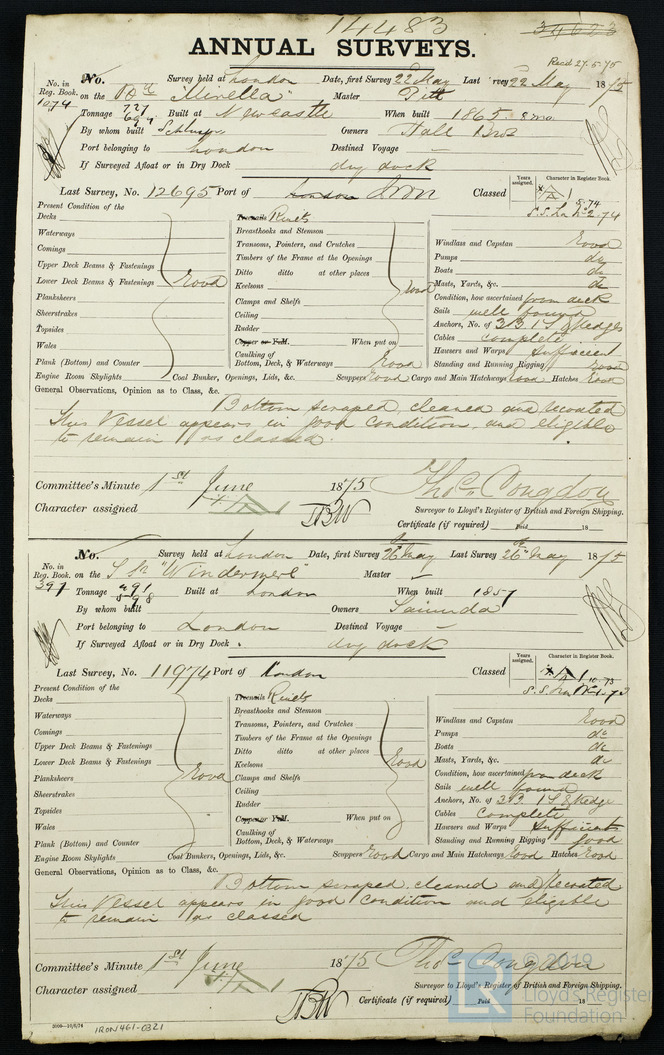 14483
ANNUAL SURVEYS.
Recd 27.5.75
No. in Reg. Book. No. Survey held at London Date, first Survey 22 May Last Survey 22 May 1875
1074 on the "Mirella" Master Pitt
Tonnage 727 Built at Newcastle When built 1865 8 mo
By whom built Owners Hall Bros
Port belonging to London Destined Voyage —
If Surveyed Afloat or in Dry Dock dry dock
Last Survey, No. 12695 Port of London Iron Classed
Years assigned. Character in Register Book.
5.74
S.S. Lon No 2-74
Present Condition of the
Decks
Waterways
Comings
Upper Deck Beams & Fastenings
Lower Deck Beams & Fastenings Good
Planksheers
Sheerstrakes
Topsides
Wales
Plank (Bottom) and Counter
Treenails Rivets
Breasthooks and Stemson
Transoms, Pointers, and Crutches
Timbers of the Frame at the Openings
Ditto ditto at other places
Keelsons Good
Clamps and Shelfs
Ceiling
Rudder
Copper or Y.M. When put on
Caulking of Bottom, Deck, & Waterways Good
Windlass and Capstan Good
Pumps do
Boats do
Masts, Yards, &c. do
Condition, how ascertained from deck
Sails well found
Anchors, No. of 3 B 1 S & Kedges
Cables complete
Hawsers and Warps Sufficient
Standing and Running Rigging Good
Engine Room Skylights Coal Bunker, Openings, Lids, &c. Scuppers Good Cargo and Main Hatchways Good Hatches Good
General Observations, Opinion as to Class, &c.
Bottom scraped, cleaned and recoated
This Vessel appears in good condition, and eligible
to remain as classed.
Committee's Minute 1st June 1875 Thos. Congdon
Character assigned Surveyor to Lloyd's Register of British and Foreign Shipping.
Certificate (if required) Paid 18
No. in Reg. Book. No. Survey held at London Date, first Survey 26 May Last Survey 26 May 1875
397 on the "Windermere" Master —
Tonnage Built at London When built 1857
By whom built Owners
Port belonging to London Destined Voyage —
If Surveyed Afloat or in Dry Dock. dry dock
Last Survey, No. 11974 Port of London Classed
Years assigned. Character in Register Book.
10.73
Present Condition of the
Decks
Waterways
Comings
Upper Deck Beams & Fastenings
Lower Deck Beams & Fastenings
Planksheers Good
Sheerstrakes
Topsides
Wales
Plank (Bottom) and Counter
Treenails Rivets
Breasthooks and Stemson
Transoms, Pointers, and Crutches
Timbers of the Frame at the Openings
Ditto ditto at other places
Keelsons Good
Clamps and Shelfs
Ceiling
Rudder
Copper or Y.M. When put on
Caulking of Bottom, Deck, & Waterways
Windlass and Capstan Good
Pumps do
Boats do
Masts, Yards, &c. do
Condition, how ascertained from deck
Sails well found
Anchors, No. of 3 B 1 S & Kedge
Cables Complete
Hawsers and Warps Sufficient
Standing and Running Rigging Good
Engine Room Skylights Coal Bunkers, Openings, Lids, &c. Scuppers Good Cargo and Main Hatchways Good Hatches Good
General Observations, Opinion as to Class, &c.
Bottom scraped, cleaned and recoated
This Vessel appears in good condition and eligible
to remain as classed
Committee's Minute 1st June 1875 Thos. Congdon
Character assigned Surveyor to Lloyd's Register of British and Foreign Shipping.
Certificate (if required) Paid 18
2000—10/6/74 IRON 461-0321
LR
© 2019
Lloyd's Register
Foundation